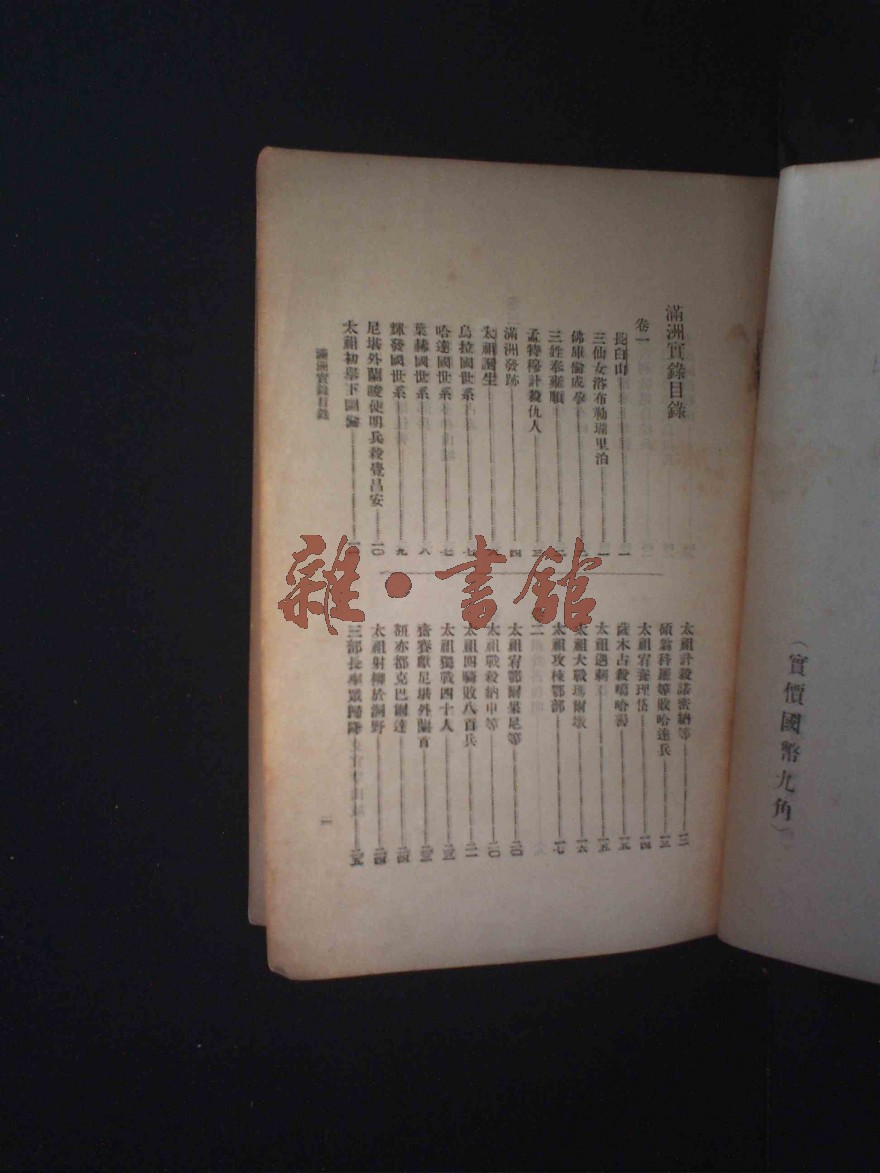 滿洲實錄目錄
卷一
長白山 一
三仙女浴布勒瑚里泊 一
佛庫倫成孕
三姓奉雍順 二
孟特穆計殺仇人 三
滿洲發跡 四
太祖誕生
烏拉國世系 七
哈達國世系 七
葉赫國世系 八
輝發國世系 九
尼堪外蘭唆使明兵殺覺昌安 一〇
太祖初舉下圖倫
太祖計殺諾密納等 一三
碩翁科羅等敗哈達兵 一三
太祖宥養理岱 一四
薩木占殺噶哈善 一五
太祖遇刺 一五
太祖大戰瑪爾墩 一六
太祖攻棟鄂部 一七
二
太祖宥鄂爾果尼等 二〇
太祖戰殺納申等 二〇
太祖四騎敗八百兵 二一
太祖獨戰四十人 二三
齋賽獻尼堪外蘭首 二三
額亦都克巴爾達 二四
太祖射柳於洞野 二四
三部長率眾歸降 二五
滿洲實錄目錄
一
（實價國幣九角）
雜·書館